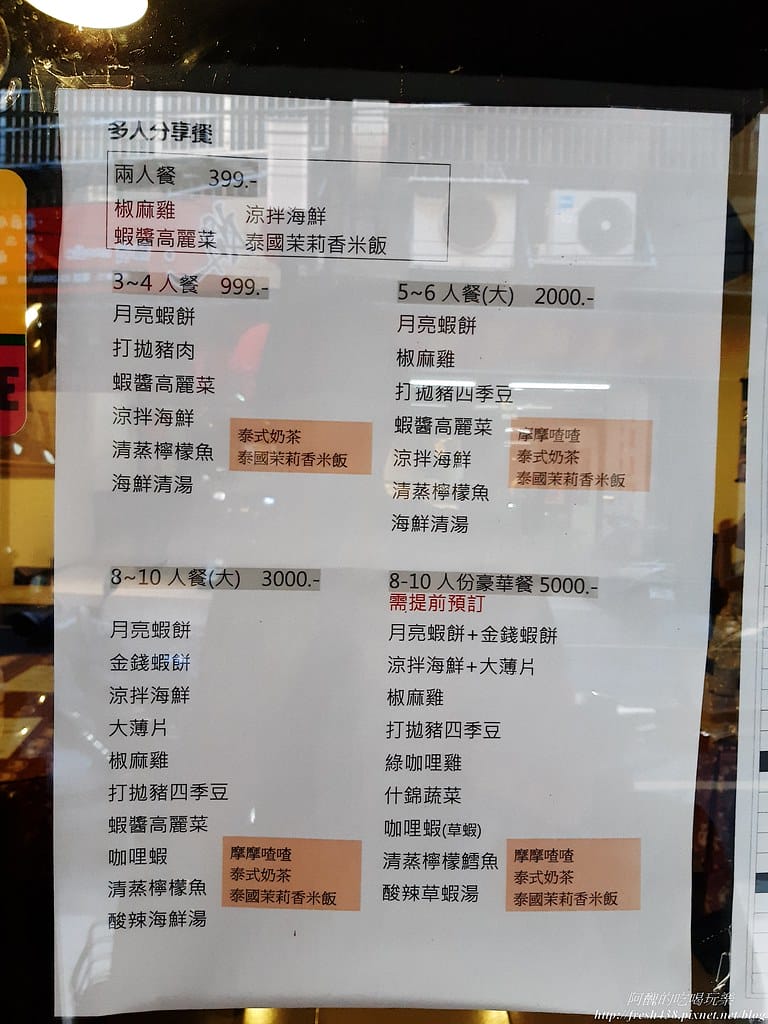 多人分享餐
兩人餐 399.-
椒麻雞 涼拌海鮮
蝦醬高麗菜 泰國茉莉香米飯
3~4 人餐 999.-
月亮蝦餅
打拋豬肉
蝦醬高麗菜
涼拌海鮮
清蒸檸檬魚
海鮮清湯
泰式奶茶
泰國茉莉香米飯
5~6 人餐(大) 2000.-
月亮蝦餅
椒麻雞
打拋豬四季豆
蝦醬高麗菜
涼拌海鮮
清蒸檸檬魚
海鮮清湯
摩摩喳喳
泰式奶茶
泰國茉莉香米飯
8~10 人餐(大) 3000.-
月亮蝦餅
金錢蝦餅
涼拌海鮮
大薄片
椒麻雞
打拋豬四季豆
蝦醬高麗菜
咖哩蝦
清蒸檸檬魚
酸辣海鮮湯
摩摩喳喳
泰式奶茶
泰國茉莉香米飯
8-10 人份豪華餐 5000.-
需提前預訂
月亮蝦餅+金錢蝦餅
涼拌海鮮+大薄片
椒麻雞
打拋豬四季豆
綠咖哩雞
什錦蔬菜
咖哩蝦(草蝦)
清蒸檸檬鱈魚
酸辣草蝦湯
摩摩喳喳
泰式奶茶
泰國茉莉香米飯
阿醜的吃喝玩樂
http://fresh438.pixnet.net/blog